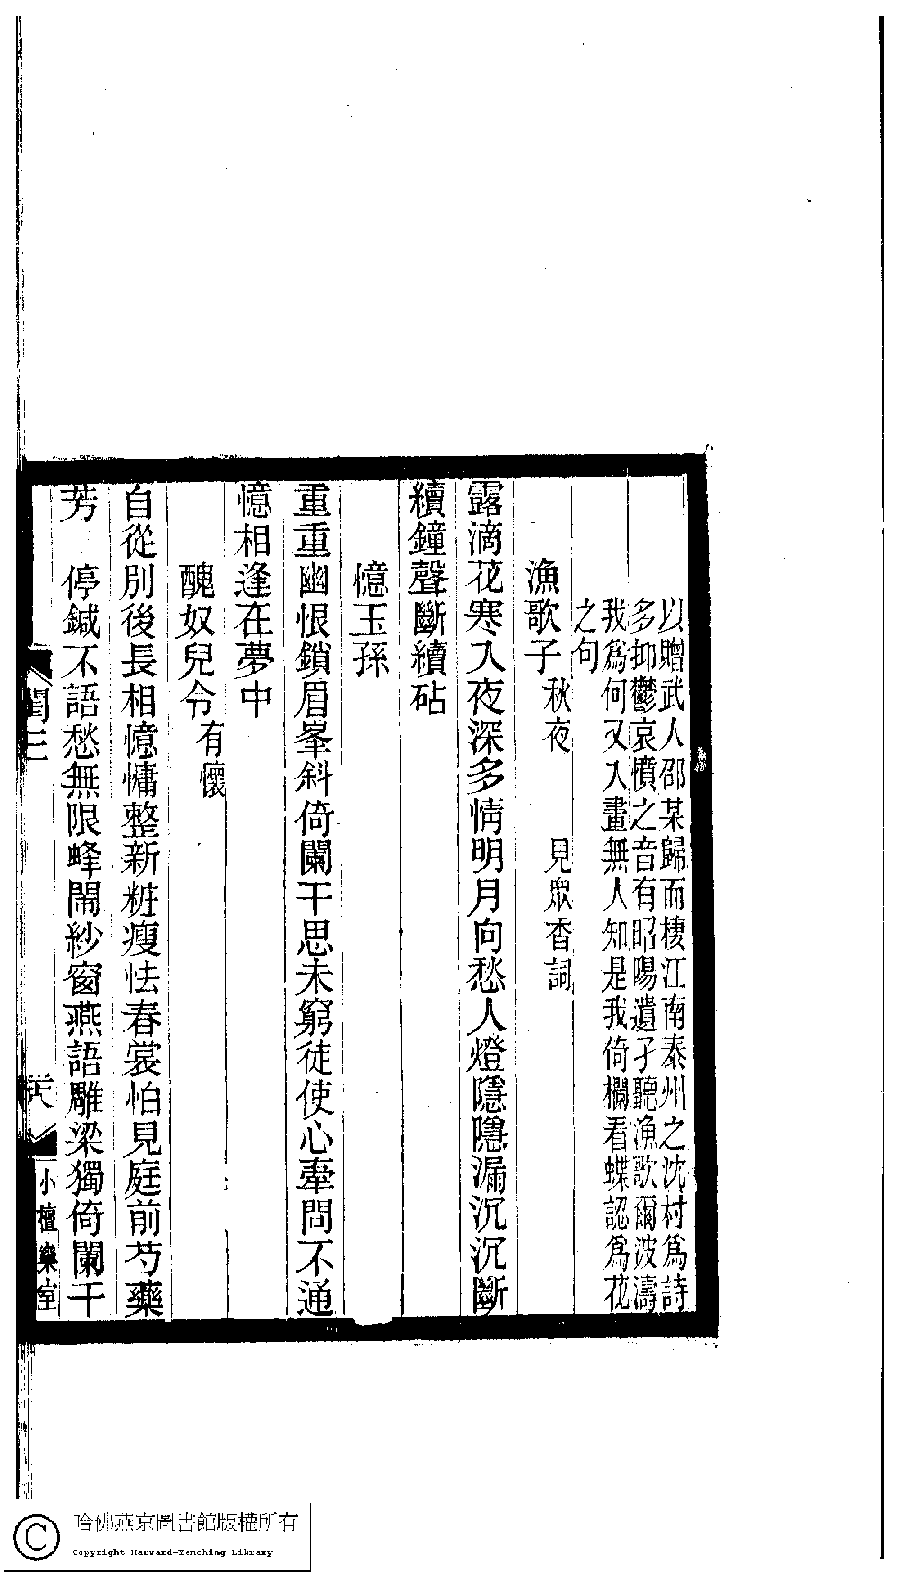 以贈武人邵某歸而棲江南泰州之沈村爲詩
多抑鬱哀憤之音有昭陽遺孑聽漁歌爾波濤
我爲何又入畫無人知是我倚欄看蝶認爲花
之句
漁歌子 秋夜 見眾香詞
露滴花寒入夜深多情明月向愁人燈隱隱漏沉沉斷
續鐘聲斷續砧
憶玉孫
重重幽恨鎖眉峯斜倚闌干思未窮徒使心牽問不通
憶相逢在夢中
醜奴兒令 有懷
自從別後長相憶慵整新粧瘦怯春裳怕見庭前芍藥
芳 停鍼不語愁無限蜂鬧紗窗燕語雕梁獨倚闌干
閨三
小檀欒室
哈佛燕京圖書館版權所有
Copyright Harvard-Yenching Library